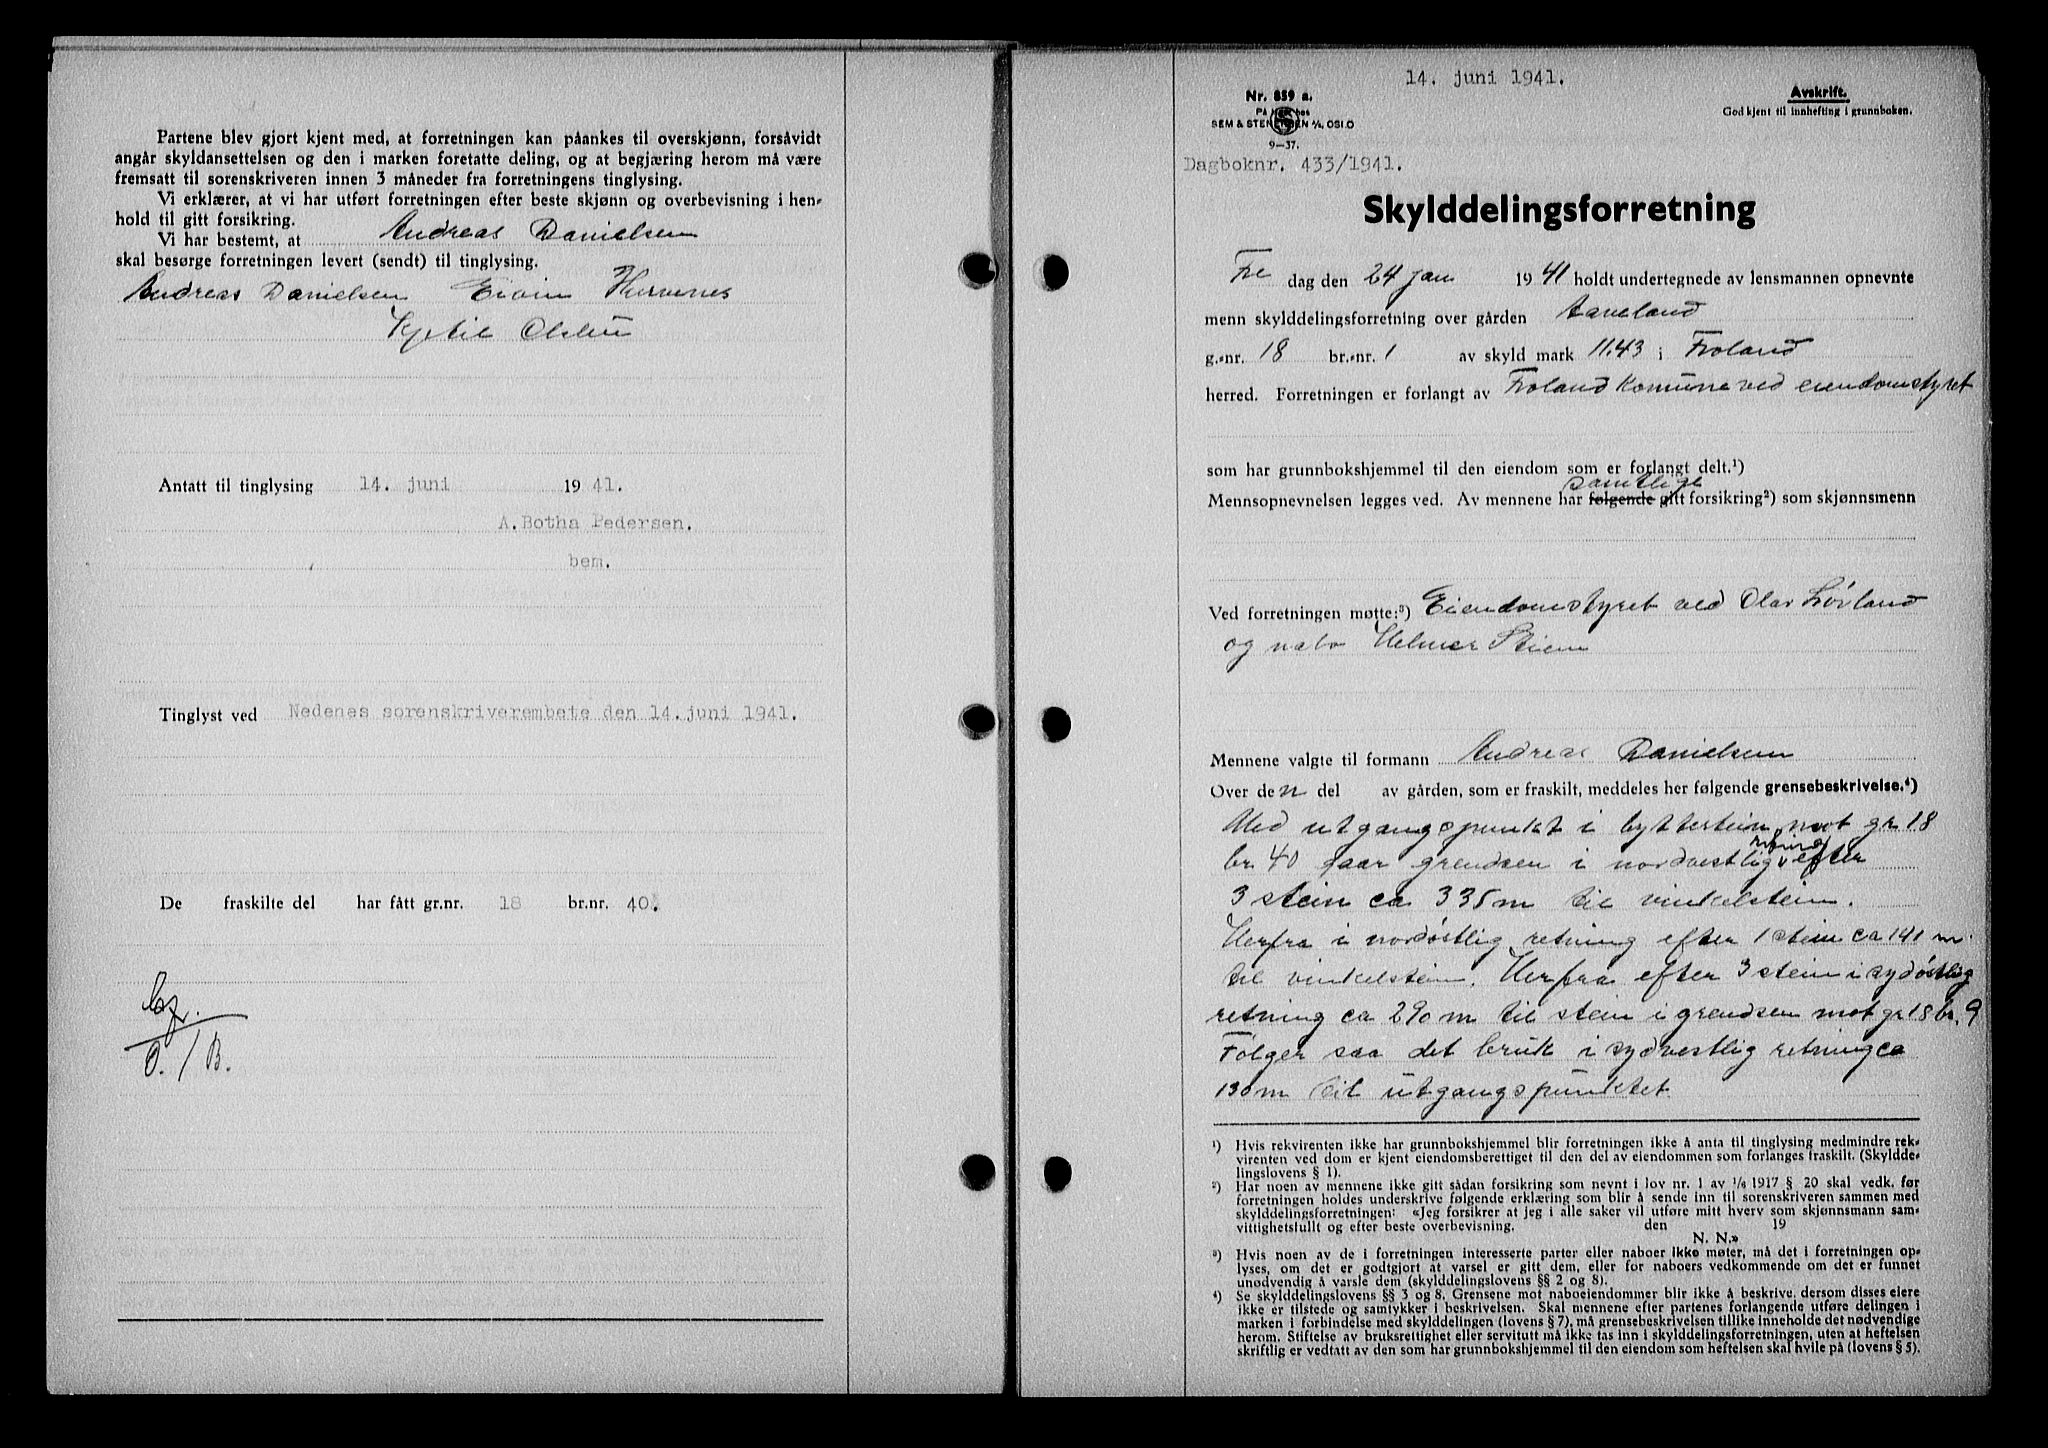 Partene blev gjort kjent med, at forretningen kan påankes til overskjønn, forsåvidt
angår skyldansettelsen og den i marken foretatte deling, og at begjæring herom må være
fremsatt til sorenskriveren innen 3 måneder fra forretningens tinglysing.
Vi erklærer, at vi har utført forretningen efter beste skjønn og overbevisning i hen-
hold til gitt forsikring.
Vi har bestemt, at Andreas Danielsen
skal besørge forretningen levert (sendt) til tinglysing.
Andreas Danielsen Eivin
Kjetil
Antatt til tinglysing 14. juni 1941.
A. Botha Pedersen.
bem.
Tinglyst ved Nedenes sorenskriverembete den 14. juni 1941.
De fraskilte del har fått gr.nr. 18 br.nr. 40.
0./B.
14. juni 1941.
Nr. 859 a.
SEM & STENERSEN A/S, OSLO
9-37.
Avskrift.
God kjent til innhefting i grunnboken.
Dagboknr. 433/1941.
Skylddelingsforretning
Fre dag den 24 jan 1941 holdt undertegnede av lensmannen opnevnte
menn skylddelingsforretning over gården Aaveland
g.-nr. 18 br.-nr. 1 av skyld mark 11.43 i Froland
herred. Forretningen er forlangt av Froland Komune ved eiendomstyret
som har grunnbokshjemmel til den eiendom som er forlangt delt.¹)
samtlige
Mennsopnevnelsen legges ved. Av mennene har følgende gitt forsikring²) som skjønnsmenn
Ved forretningen møtte:³) Eiendomstyret ved Olav Løvland
og nabo Helmer Stien
Mennene valgte til formann Andreas Danielsen
Over den del av gården, som er fraskilt, meddeles her følgende grensebeskrivelse.⁴)
Med utgangspunkt i bytterstein mot gr 18
br. 40 gaar grendsen i nordvestlig retning efter
3 stein ca 335 m til vinkelstein.
Herfra i nordøstlig retning efter 1 stein ca 141 m.
til vinkelstein. Herfra efter 3 stein i sydøstlig
retning ca 290 m til stein i grendsen mot gr 18 br. 9
Følger saa det bruk i sydvestlig retning ca
130 m til utgangspunktet.
¹) Hvis rekvirenten ikke har grunnbokshjemmel blir forretningen ikke å anta til tinglysing medmindre rek-
virenten ved dom er kjent eiendomsberettiget til den del av eiendommen som forlanges fraskilt. (Skyldde-
lingslovens § 1).
²) Har noen av mennene ikke gitt sådan forsikring som nevnt i lov nr. 1 av 1/6 1917 § 20 skal vedk. før
forretningen holdes underskrive følgende erklæring som blir å sende inn til sorenskriveren sammen med
skylddelingsforretningen: «Jeg forsikrer at jeg i alle saker vil utføre mitt hverv som skjønnsmann sam-
vittighetsfullt og efter beste overbevisning. den 19
N. N.»
³) Hvis noen av de i forretningen interesserte parter eller naboer ikke møter, må det i forretningen op-
lyses, om det er godtgjort at varsel er gitt dem, eller for naboers vedkommende om det er funnet
unødvendig å varsle dem (skylddelingslovens §§ 2 og 8).
⁴) Se skylddelingslovens §§ 3 og 8. Grensene mot naboeiendommer blir ikke å beskrive, dersom disses eiere
ikke er tilstede og samtykker i beskrivelsen. Skal mennene efter partenes forlangende utføre delingen i
marken i forbindelse med skylddelingen (lovens § 7), må grensebeskrivelsen tillike inneholde det nødvendige
herom. Stiftelse av bruksrettighet eller servitutt må ikke tas inn i skylddelingsforretningen, uten at heftelsen
skriftlig er vedtatt av den som har grunnbokshjemmel til den eiendom som heftelsen skal hvile på (lovens § 5).